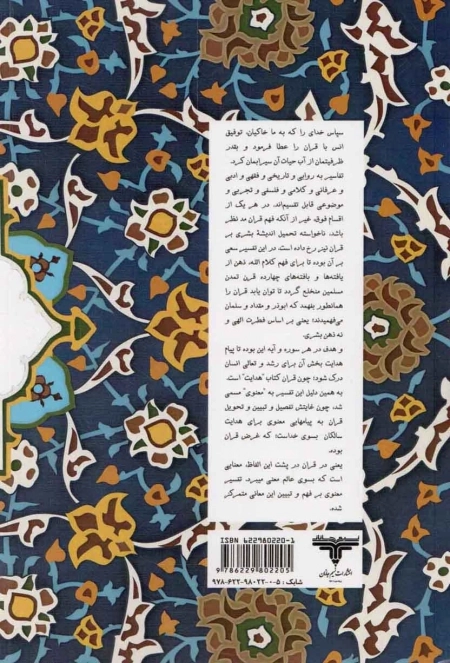 سپاس خدای را که به ما خاکیان، توفیق
انس با قران را عطا فرمود و بقدر
ظرفیتمان از آب حیات آن سیرابمان کرد.
تفاسیر به روایی و تاریخی و فقهی و ادبی
و عرفانی و کلامی و فلسفی و تجربی و
موضوعی قابل تقسیم‌اند. در هر یک از
اقسام فوق، غیر از آنکه فهم قران مد نظر
باشد، ناخواسته تحمیل اندیشهٔ بشری بر
قران نیز رخ داده است. در این تفسیر سعی
بر آن بوده تا برای فهم کلام الله، ذهن از
یافته‌ها و بافته‌های چهارده قرن تمدن
مسلمین منخلع گردد تا توان یابد قران را
همانطور بفهمد که ابوذر و مقداد و سلمان
می‌فهمیدند؛ یعنی بر اساس فطرت الهی و
نه ذهن بشری.
و هدف در هر سوره و آیه این بوده تا پیام
هدایت بخش آن برای رشد و تعالی انسان
درک شود؛ چون قران کتاب "هدایت" است.
به همین دلیل این تفسیر به "معنوی" مسمی
شد، چون غایتش تفصیل و تبیین و تحویل
قران به پیامهایی معنوی برای هدایت
سالکان بسوی خداست؛ که غرض قران
بوده.
یعنی در قران در پشت این الفاظ، معنایی
است که بسوی عالم معنی میبرد. تفسیر
معنوی بر فهم و تبیین این معانی متمرکز
شده.
ISBN 622980220-1
9 786229 802205
شابک : ۹۷۸-۶۲۲-۹۸۰۲۲-۰-۵